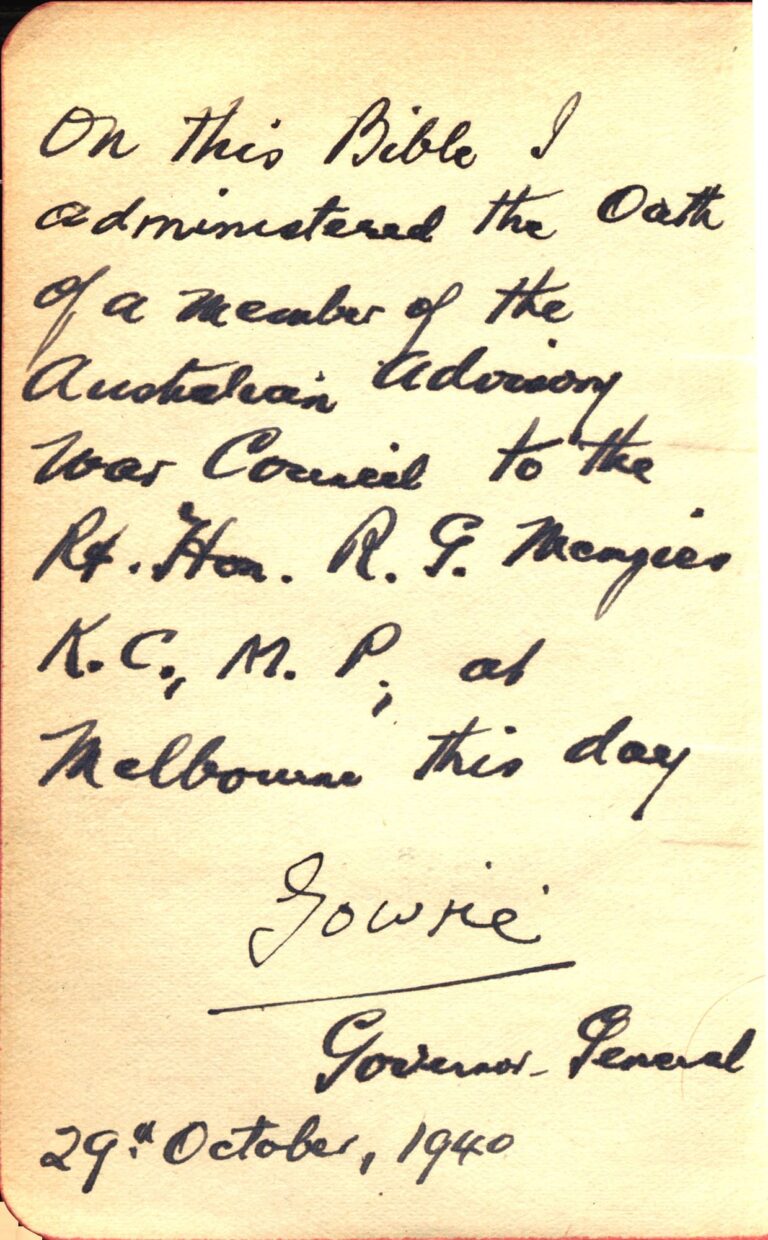 On this Bible I
administered the Oath
of a member of the
Australian Advisory
War Council to the
Rt. Hon. R. G. Menzies
K.C., M. P., at
Melbourne this day
Gowrie
Governor-General
29th October, 1940